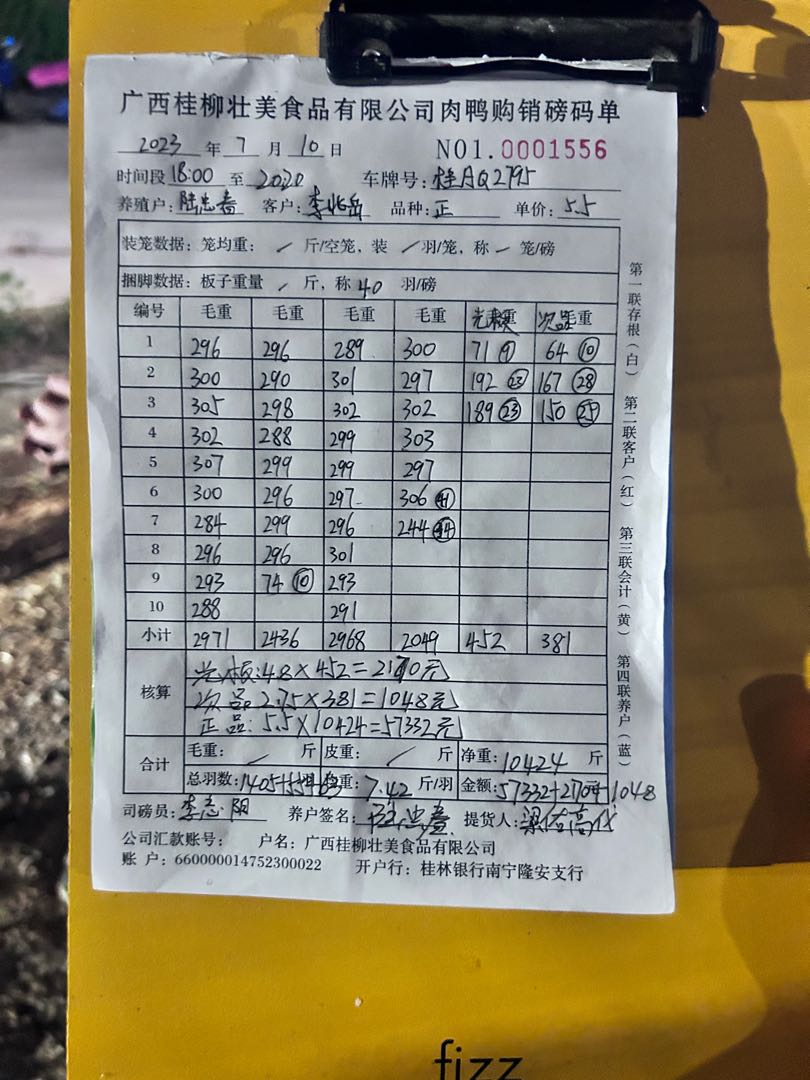 广西桂柳壮美食品有限公司肉鸭购销磅码单
2023 年 7 月 10 日 NO1.0001556
时间段 18:00 至 2020 车牌号: 桂AQ2795
养殖户: 陆忠 客户: 李兆岳 品种: 正 单价: 5.5
装笼数据: 笼均重: / 斤/空笼, 装 / 羽/笼, 称 / 笼/磅
捆脚数据: 板子重量 / 斤, 称 40 羽/磅
编号 毛重 毛重 毛重 毛重 重 次品 毛重
1 296 296 289 300 71 ⑨ 64 ⑩
2 300 290 301 297 192 ㉓ 167 ㉘
3 305 298 302 302 189 ㉓ 150 ㉕
4 302 288 299 303
5 307 299 299 297
6 300 296 297 306 ㊶
7 284 299 296 244
8 296 296 301
9 293 74 ⑩ 293
10 288 291
小计 2971 2436 2968 2049 452 381
核算
光板: 4.8×452=2170元
次品 2.75×381=1048元
正品: 5.5×10424=57332元
合计
毛重: / 斤 皮重: / 斤 净重: 10424 斤
总羽数: 1405+55+63 重: 7.42 斤/羽 金额: 57332+2170+1048
司磅员: 李志阳 养户签名: 陆忠 提货人: 梁佑高
公司汇款账号: 户名: 广西桂柳壮美食品有限公司
账 户: 660000014752300022 开户行: 桂林银行南宁隆安支行
第一联存根(白) 第二联客户(红) 第三联会计(黄) 第四联养户(蓝)
fizz